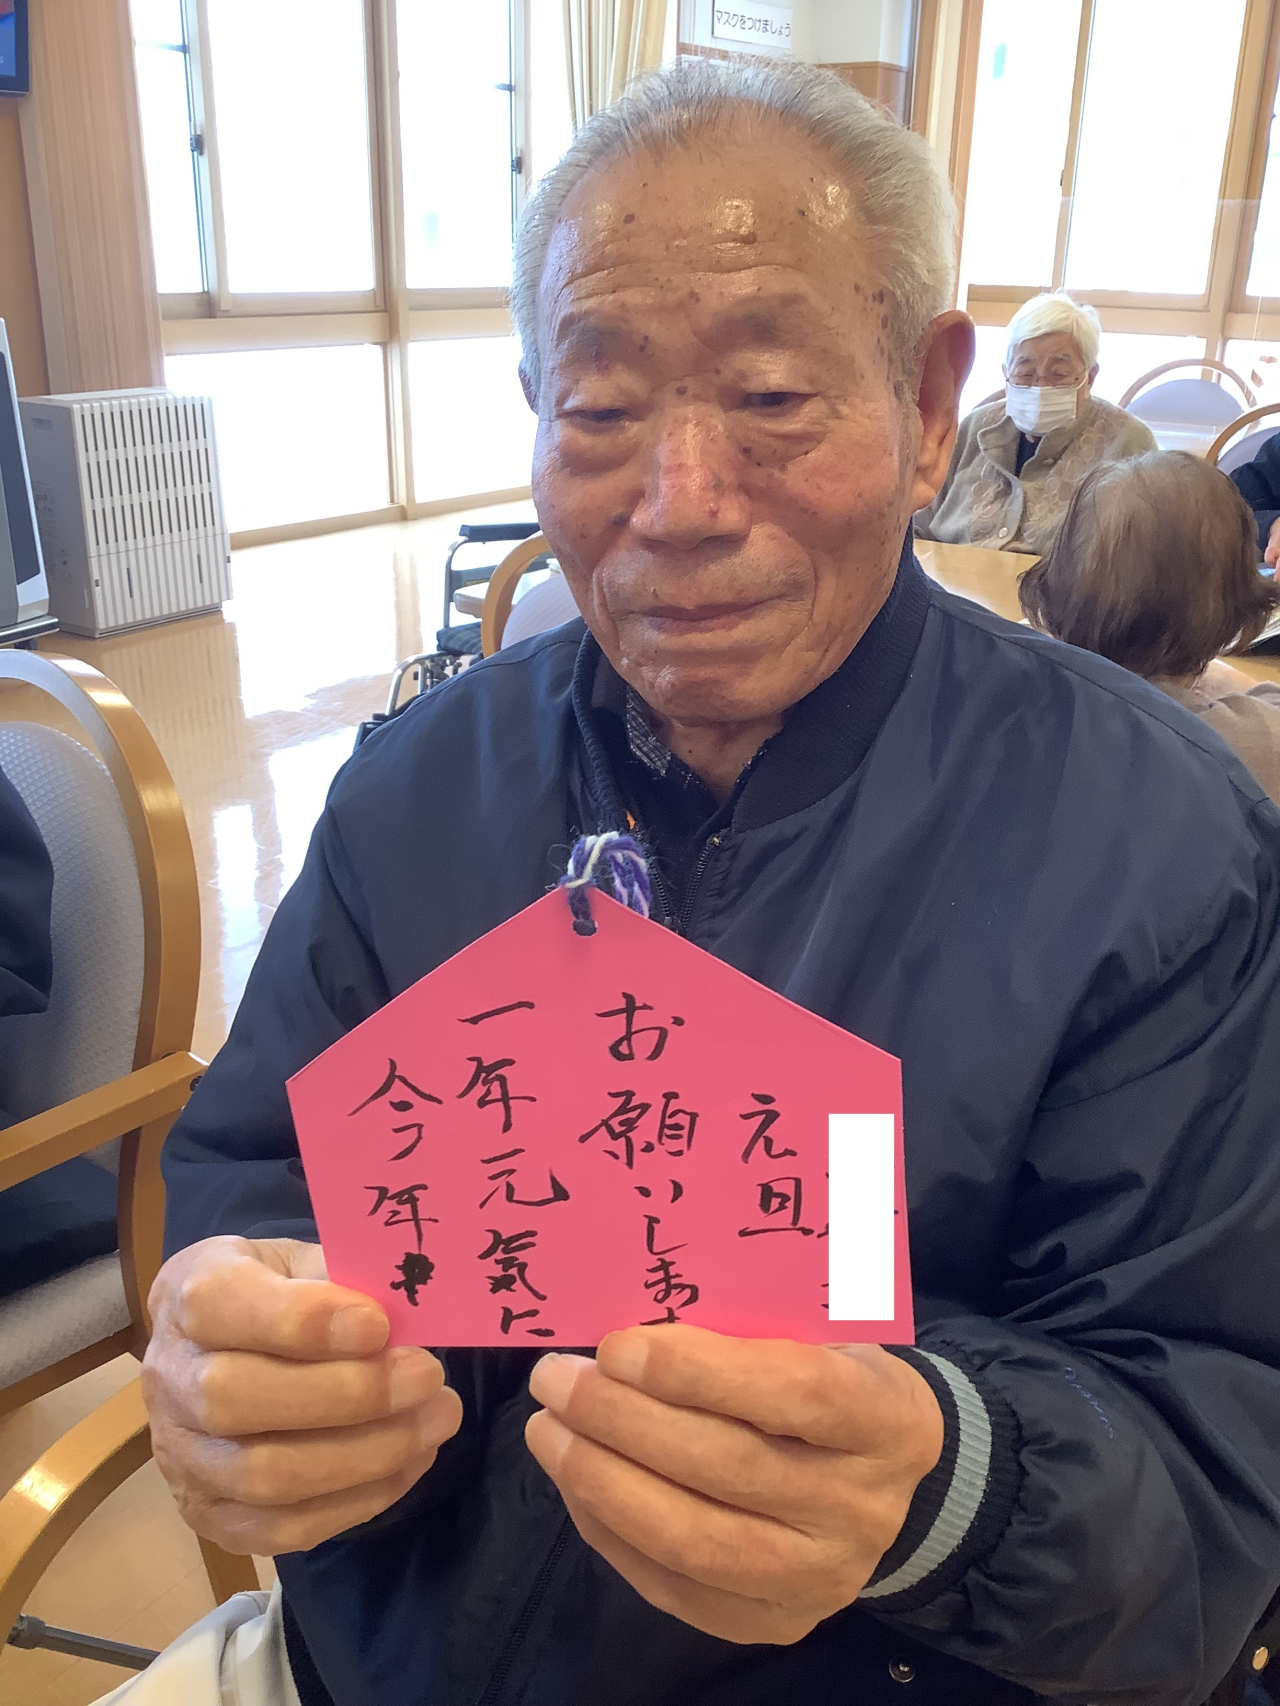 マスクをつけましょう
今年も
一年元気に
お願いします
元旦